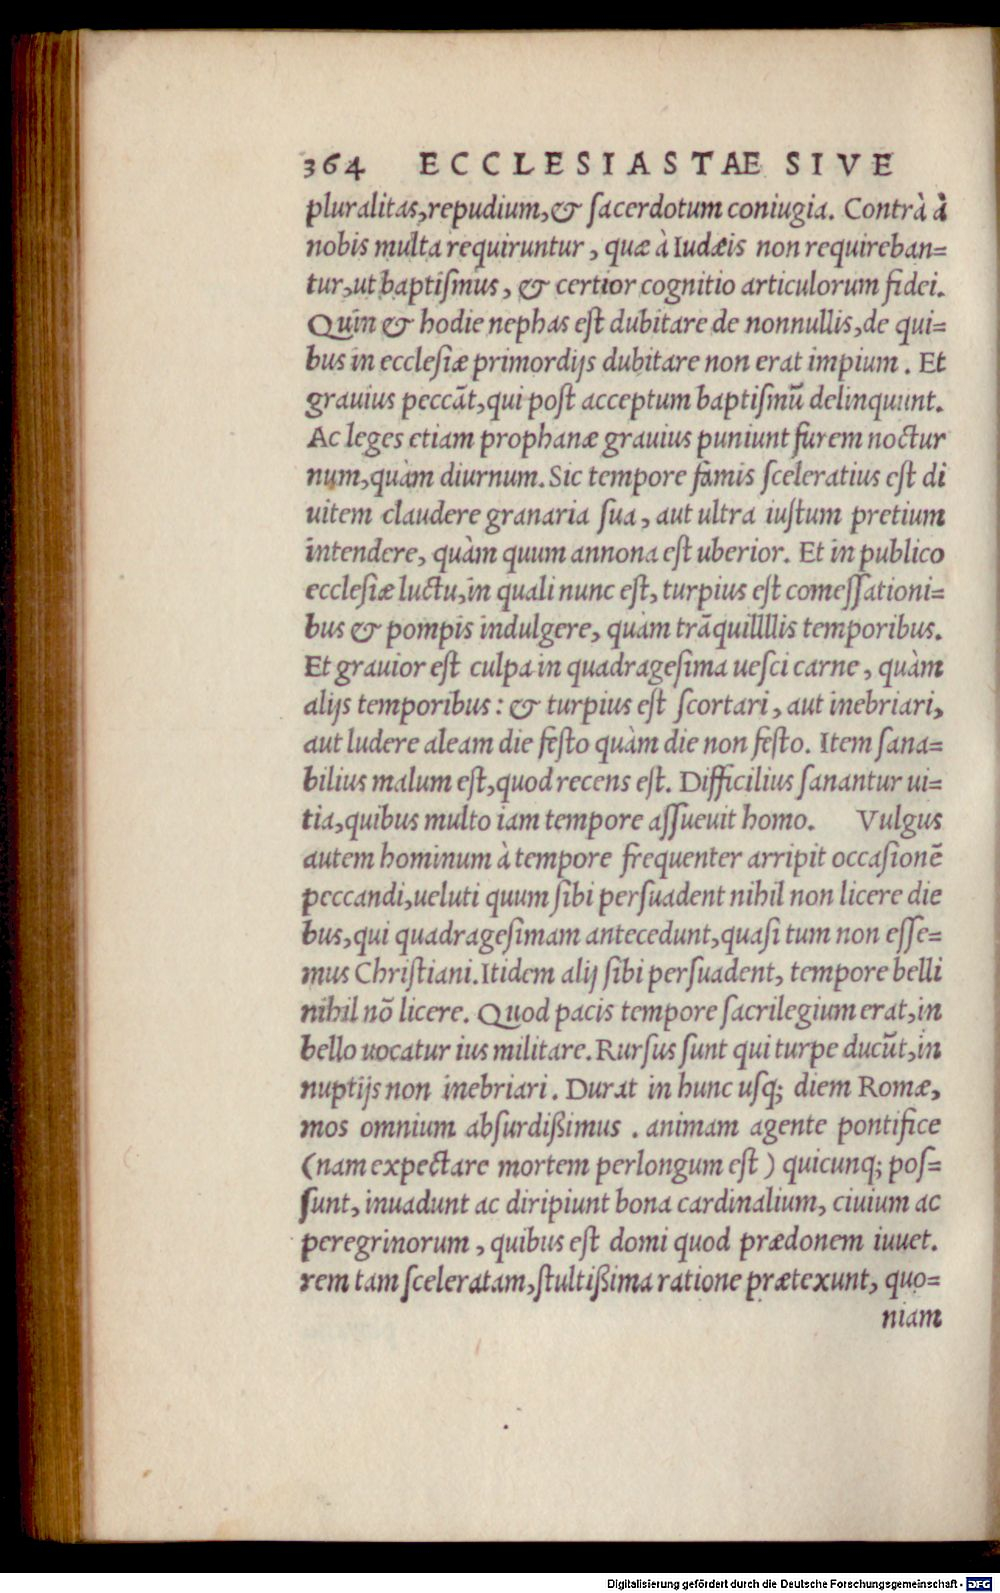 364 ECCLESIASTAE SIVE
pluralitas, repudium, & ſacerdotum coniugia. Contrà à
nobis multa requiruntur, quæ à Iudæis non requireban=
tur, ut baptiſmus, & certior cognitio articulorum fidei.
Quin & hodie nephas eſt dubitare de nonnullis, de qui=
bus in ecclesiæ primordijs dubitare non erat impium. Et
grauius peccãt, qui poſt acceptum baptiſmũ delinquunt.
Ac leges etiam prophanæ grauius puniunt furem noctur
num, quàm diurnum. Sic tempore famis ſceleratius eſt di
uitem claudere granaria ſua, aut ultra iuſtum pretium
intendere, quàm quum annona eſt uberior. Et in publico
eccleſiæ luctu, in quali nunc eſt, turpius eſt comeſſationi=
bus & pompis indulgere, quàm trãquillllis temporibus.
Et grauior eſt culpa in quadrageſima ueſci carne, quàm
alijs temporibus: & turpius eſt ſcortari, aut inebriari,
aut ludere aleam die feſto quàm die non feſto. Item ſana=
bilius malum eſt, quod recens eſt. Difficilius ſanantur ui=
tia, quibus multo iam tempore aſſueuit homo. Vulgus
autem hominum à tempore frequenter arripit occaſionẽ
peccandi, ueluti quum ſibi perſuadent nihil non licere die
bus, qui quadrageſimam antecedunt, quaſi tum non eſſe=
mus Chriſtiani. Itidem alij ſibi perſuadent, tempore belli
nihil nõ licere. Quod pacis tempore ſacrilegium erat, in
bello uocatur ius militare. Rurſus ſunt qui turpe ducũt, in
nuptijs non inebriari. Durat in hunc uſq; diem Romæ,
mos omnium abſurdißimus. animam agente pontifice
(nam expectare mortem perlongum eſt) quicunq; poſ=
ſunt, inuadunt ac diripiunt bona cardinalium, ciuium ac
peregrinorum, quibus eſt domi quod prædonem iuuet.
rem tam ſceleratam, ſtultißima ratione prætexunt, quo=
niam
Digitalisierung gefördert durch die Deutsche Forschungsgemeinschaft - DFG